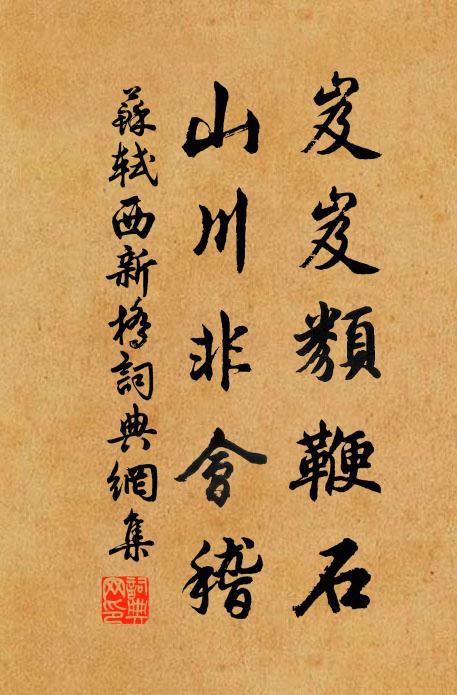 岌岌類鞭石
山川非會稽
蘇軾西新橋詞典網集
詞典网印